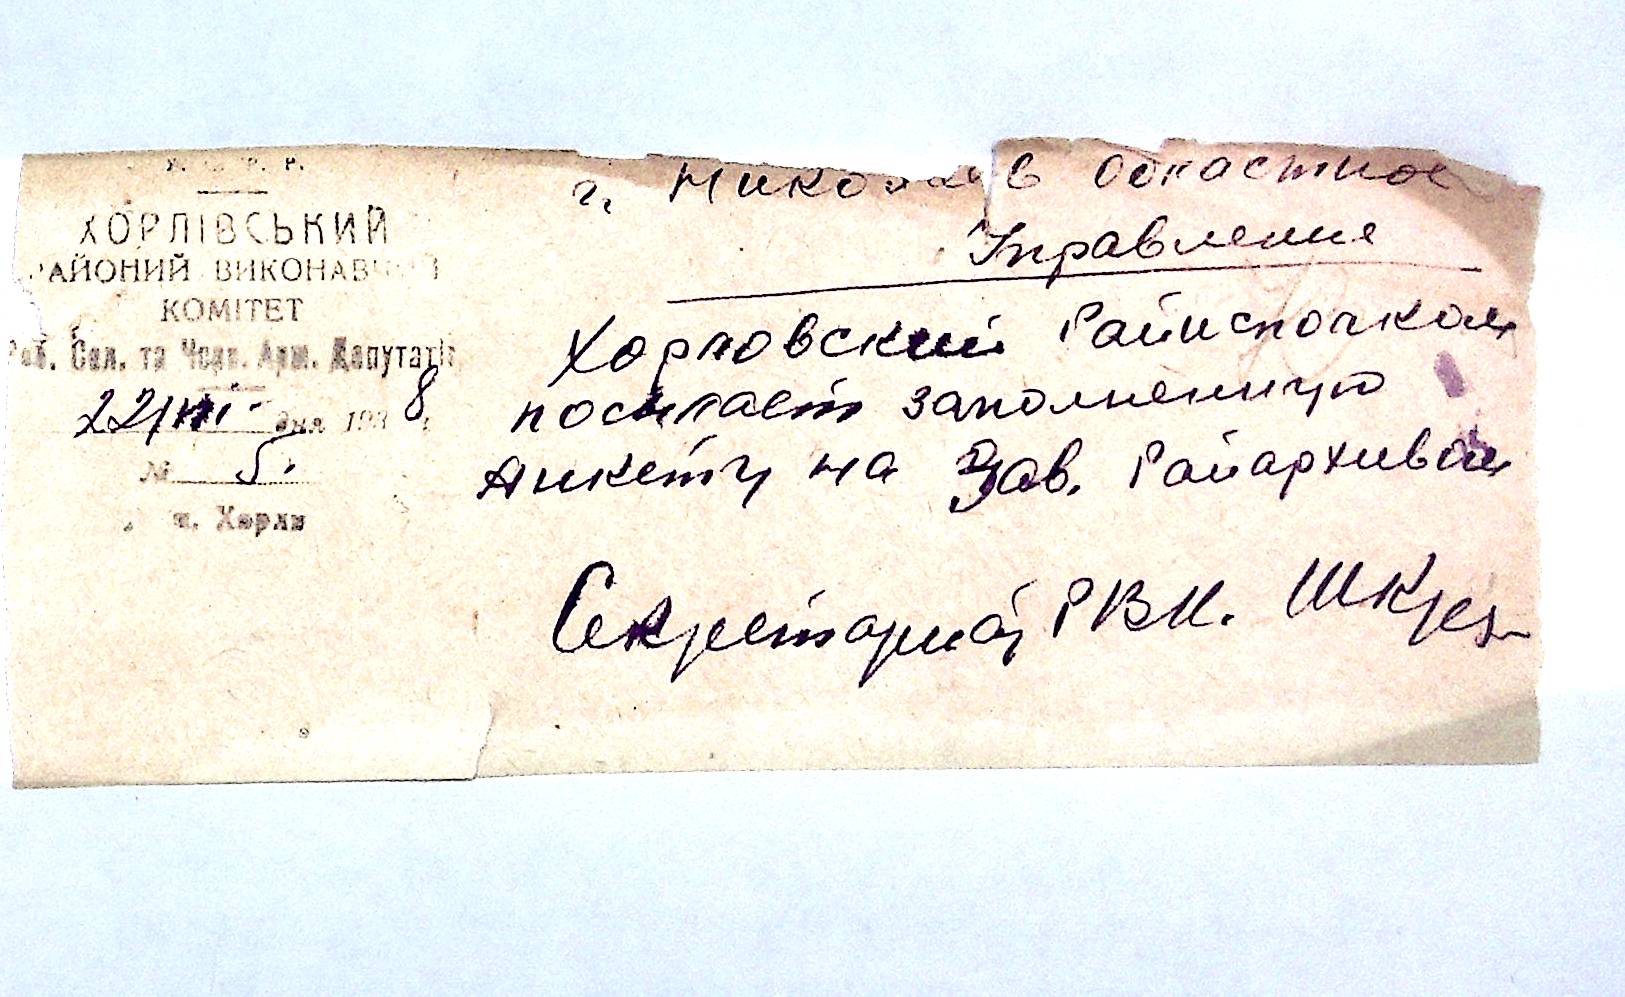 У. С. Р. Р.
ХОРЛІВСЬКИЙ
РАЙОНИЙ ВИКОНАВЧИЙ
КОМІТЕТ
Роб. Сел. та Черв. Арм. Депутатів
22/VIII дня 1938 г.
№ 5.
п. Хорли
г. Николаев Областное
Управление
Хорловский Райисполком
посылает заполненную
Анкету на Зав. Райархивом
Секретарь РВК.